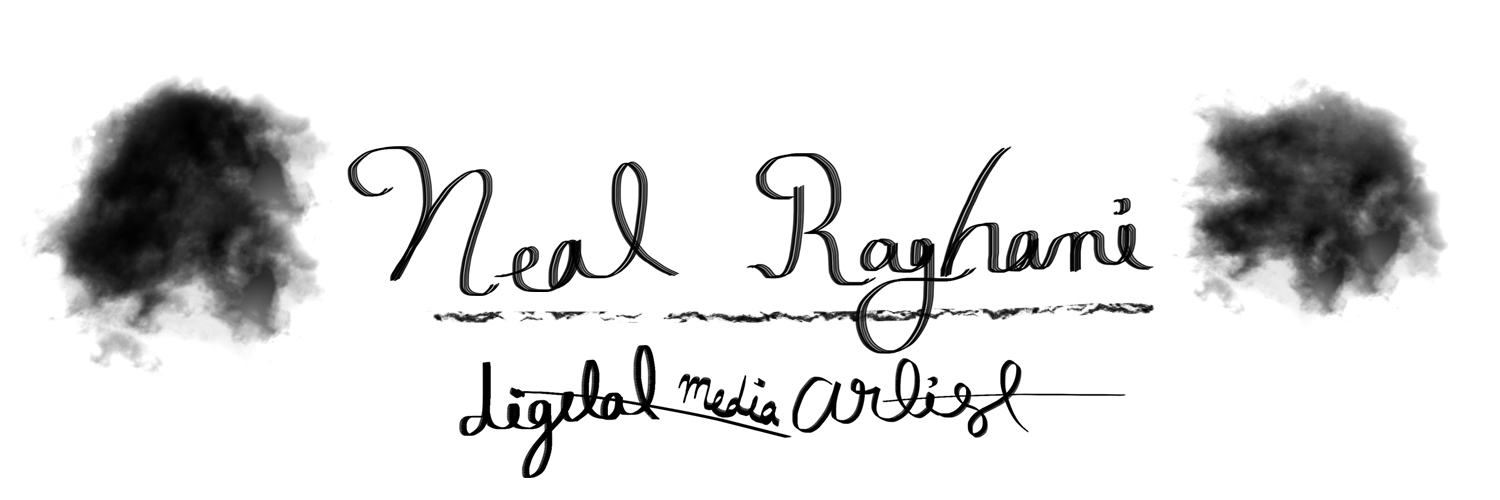 Neal Raghani
digital media artist